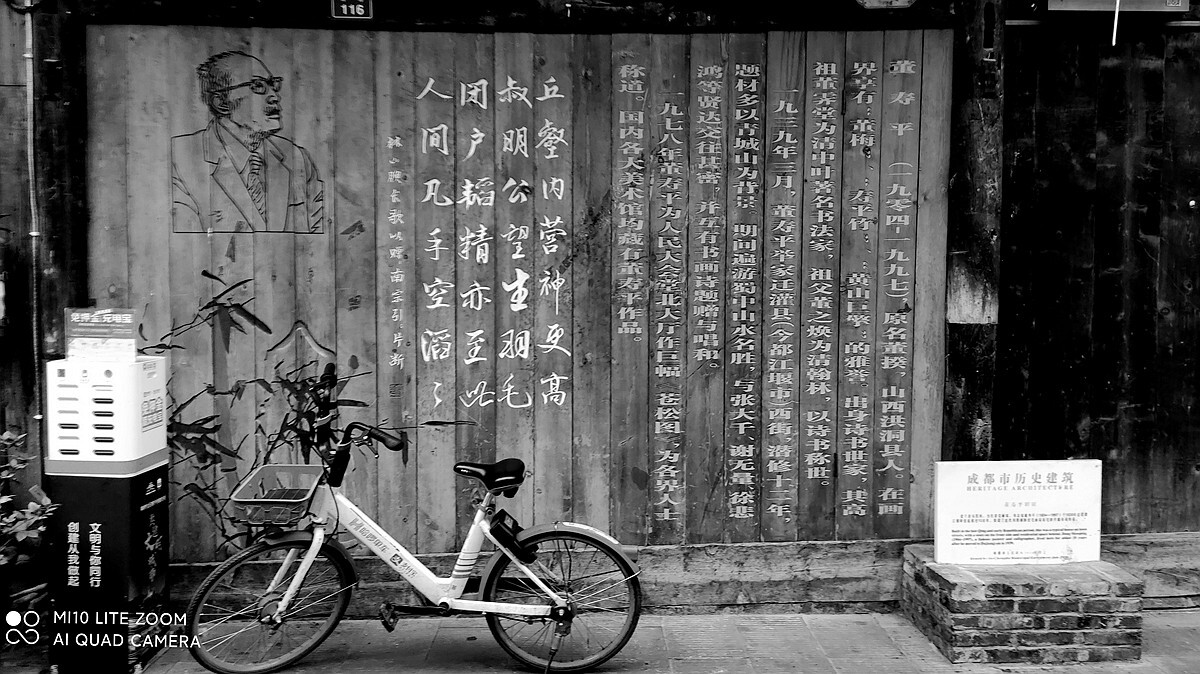 116
董寿平（一九零四-一九九七），原名董揆，山西洪洞县人。在画
界享有：董梅、：寿平竹、：黄山巨擘：的雅誉。出身诗书世家，其高
祖董霁堂为清中叶著名书法家，祖父董文焕为清翰林，以诗书称世。
一九三九年三月，董寿平举家迁灌县（今都江堰市）西街，潜修十二年，
题材多以青城山为背景。期间遍游蜀中山水名胜，与张大千、谢无量、徐悲
鸿等贤达交往甚密，并互有书画诗题赠与唱和。
一九七八年董寿平为人民大会堂北大厅作巨幅《苍松图》，为各界人士
称道。国内各大美术馆均藏有董寿平作品。
丘壑内营神更高
叔明公望生羽毛
闭户韬精亦至此
人间几手空滔滔
免押金充电宝
文明与你同行
创建从我做起
哈啰单车
成都市历史建筑
HERITAGE ARCHITECTURE
MI10 LITE ZOOM
AI QUAD CAMERA